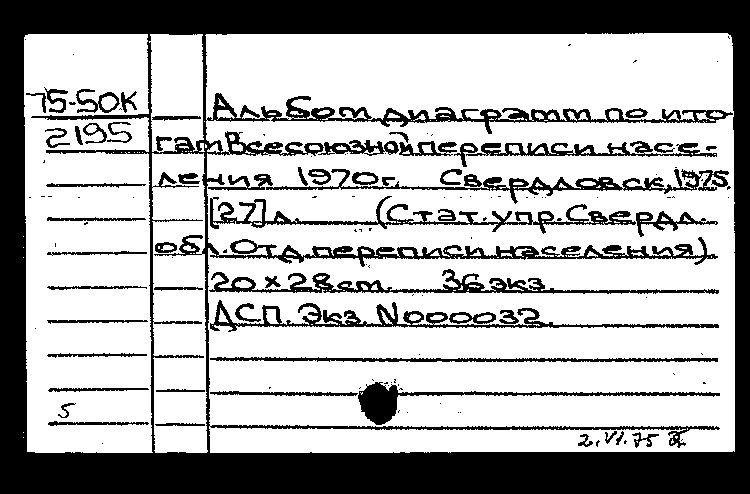 75-50К
2195
Альбом диаграмм по ито-
гам Всесоюзной переписи насе-
ления 1970г. Свердловск, 1975.
[27] л. (Стат. упр. Свердл.
обл. Отд. переписи населения)
20 × 28 cm. 36 экз.
ДСП. Экз. N000032.
5
2.VI.75